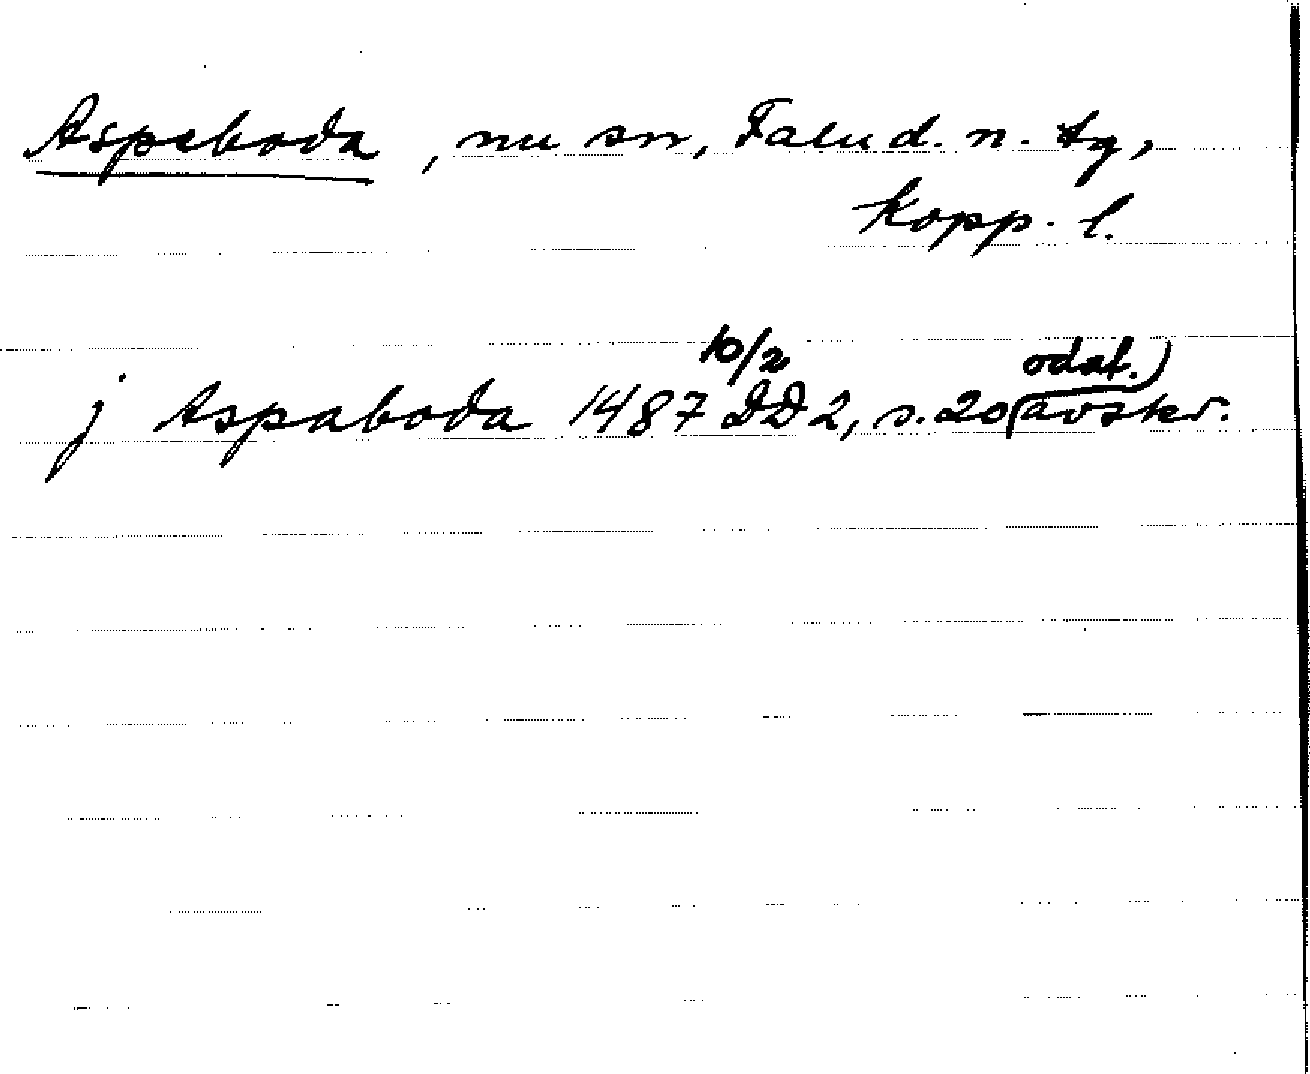 Aspeboda, nu sn, Falu d. n. tg,
Kopp. l.
j Aspaboda 1487 10/2 DD 2, s. 20 (avskr. odat.)